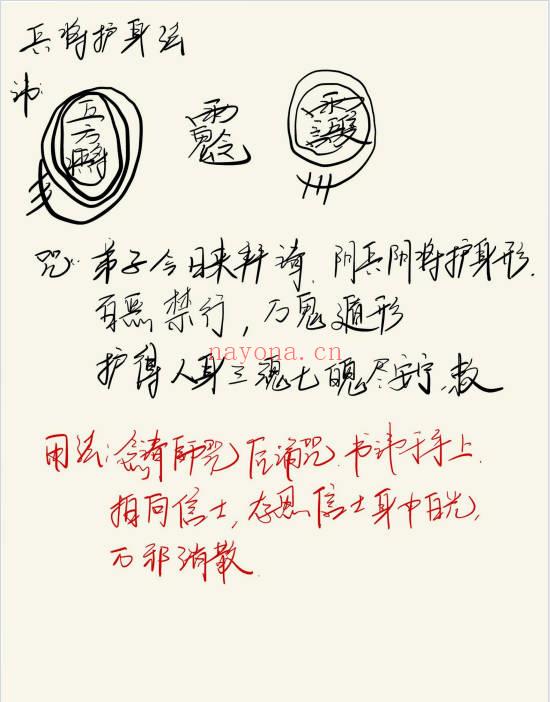 兵将护身法
讳:
五方將
咒: 弟子今日来拜请, 阴兵阴将护身形.
百恶禁行, 万鬼遁形
nayona.cn
护得人身三魂七魄尽安宁, 敕
用法: 念请師咒后诵咒. 书讳于手上.
指向信士, 存思信士身中白光,
万邪消散.